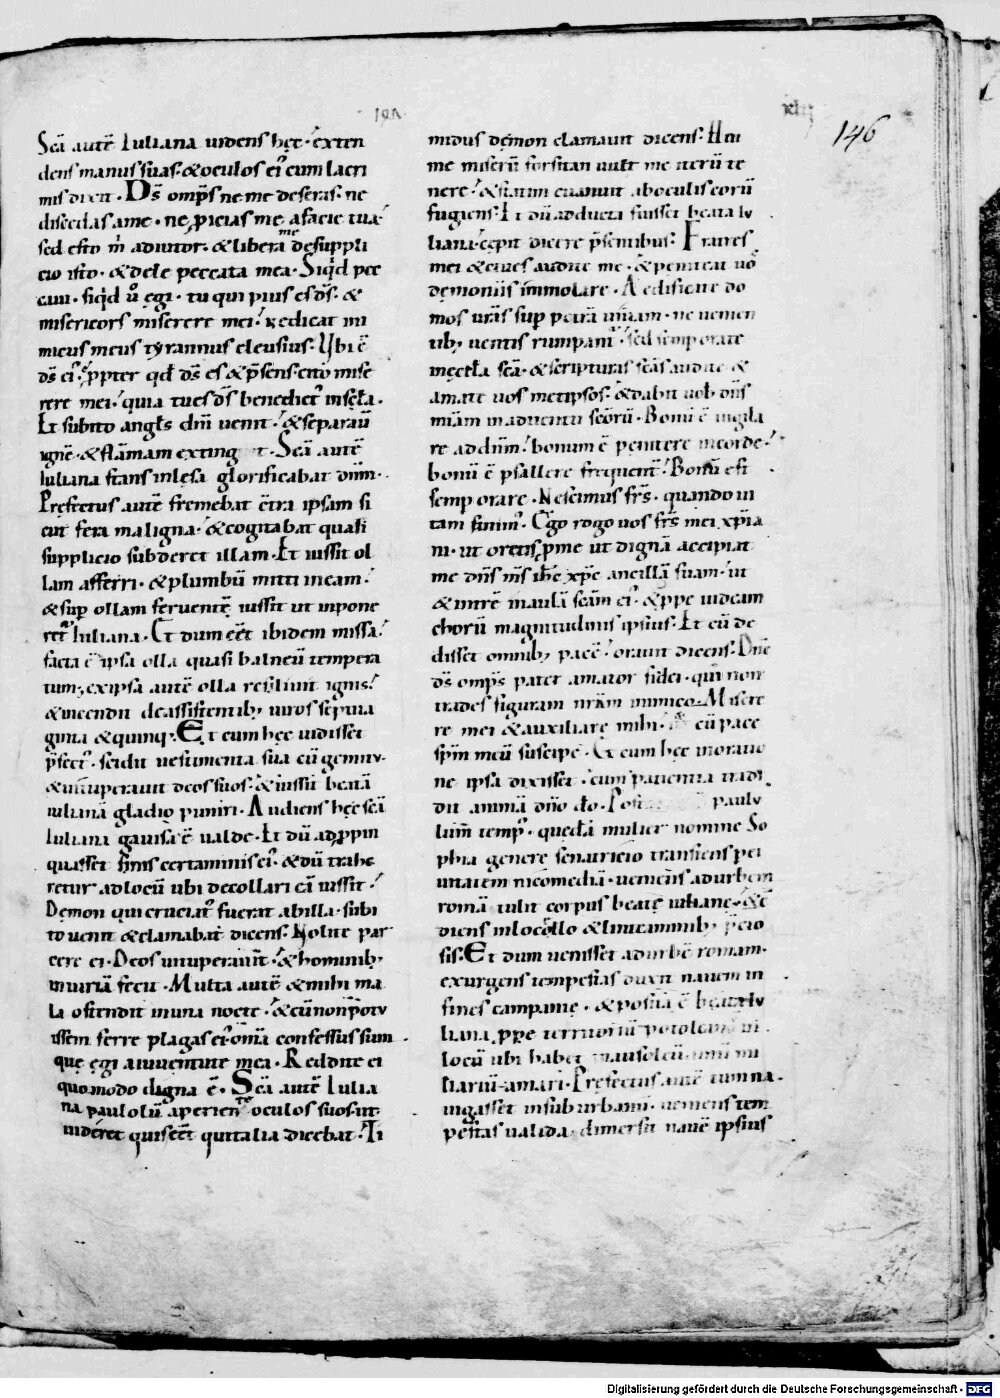 146
Scā autē Iuliana uidens hęc · exten
dens manus suas · & oculos ei᾽ cum lacri
mis dixit · Dꝰ omp̄s ne me deseras · ne
discedas a me · ne ꝓicias me a facie tua ·
sed esto m̄ adiutor · & libera me de suppli
cio isto · & dele peccata mea · Siqd̄ pec
caui · siqd̄ ū ęgi · tu qui pius es ds̄ · &
misericors miserere mei · Ne dicat ini
micus meus tyrannus eleusius · Vbi ē
ds̄ ei᾽ · ꝓpter qd̄ ds̄ es & p̄sens · cito mise
rere mei · quia tu es ds̄ benedict᾽ in sc̄ła ·
Et subito angls̄ dn̄i uenit · & separauit
ignē · & flāmam · Scā autē
Iuliana stans inlęsa glorificabat dn̄m ·
Pręfectus autē fremebat c̄tra ipsam si
cut fera maligna · & cogitabat quali
supplicio subderet illam · Et iussit ol
lam afferri · & plumbū mitti in eam ·
& sup ollam feruentē iussit ut inpone
ret᾽ Iuliana · Et dum eēt ibidem missa ·
facta ē ipsa olla quasi balneū tempera
tum; ex ipsa autē olla resiliuit ignis ·
& incendit de assistentib; uiros septua
ginta & quinq; · Et cum hęc uidisset
p̄fect᾽ · scidit uestimenta sua cū gemitu ·
& uituperauit deos suos · & iussit beatā
iulianā gladio puniri · Audiens hęc scā
Iuliana gauisa ē ualde · Et dū adꝓpin
quasset finis certaminis ei᾽ · & dū trahe
retur ad locū ubi decollari eā iussit ·
Dęmon qui cruciat᾽ fuerat ab illa · subi
to uenit & clamabat dicens · Nolite par
cere ei · Deos uituperauit · & hominib;
iniuriā fecit · Multa autē & mihi ma
la ostendit in una nocte · & cū non potu
issem ferre plagas ei᾽ · om̄ia confessus sum
quę ęgi a iuuentute mea · Reddite ei
quomodo digna ē · Scā autē Iulia
na paulolū aperiente oculos suos · ut
uideret quis eēt qui talia dicebat · Ti
midus dęmon clamauit dicens · Heu
me miserū forsitan uult me iterū te
nere · & statim euanuit ab oculis eorū
fugiens · Et dū adducta fuisset beata Iu
liana · cępit dicere p̄sentibus · Fratres
mei & ciues audite me · & peniteat uos
dęmoniis immolare · Aedificate do
mos urās sup petrā uiuam · ne uenien
tib; uentis rumpant᾽ · sed semp orate
in ęcctła scā · & scripturas scās audite &
amate uos metipsos · & dabit uob dn̄s
miām in aduentu scōrū · Bonū ē uigila
re ad dn̄m · bonum ē penitere in corde ·
bonū ē psallere frequent᾽ · Bonū est
semp orare · Nescimus frs̄ · quando ui
tam finim᾽ · Ego rogo uos frs̄ mei xp̄ia
ni · ut oretis ꝓ me ut dignā accipiat
me dn̄s n̄s ihc̄ xp̄c ancillā suam · ut
& intrē in aulā scām ei᾽ · & ꝓpe uideam
chorū magnitudinis ipsius · Et cū de
disset omnib; pacē · orauit dicens · Dn̄e
ds̄ omp̄s pater amator fidei · qui non
trades figuram nr̄am inimico · Misere
re mei & auxiliare mihi · & cū pace
sp̄m meū suscipe · Et cum hęc in oratio
ne ipsa dixisset · cum patientia tradi
dit animā dn̄o dō · Post paulu
lum temp᾽ · quedā mulier nomine So
phia genere senatricio transiens per
uitatem nicomediā · ueniens ad urbem
romā tulit corpus beatę iulianę · & c̄
diens in locello & linteaminib; p̄cio
sis · Et dum uenisset ad urbē romam ·
exurgens tempestas duxit nauem in
fines campanię · & posita ē beata Iu
liana ꝓpe territoriū
locū ubi habet mausoleū
liariū amari · Pręfectus autē cum na
uigasset in suburbanū · ueniens tem
pestas ualida · dimersit nauē ipsius
Digitalisierung gefördert durch die Deutsche Forschungsgemeinschaft - DFG